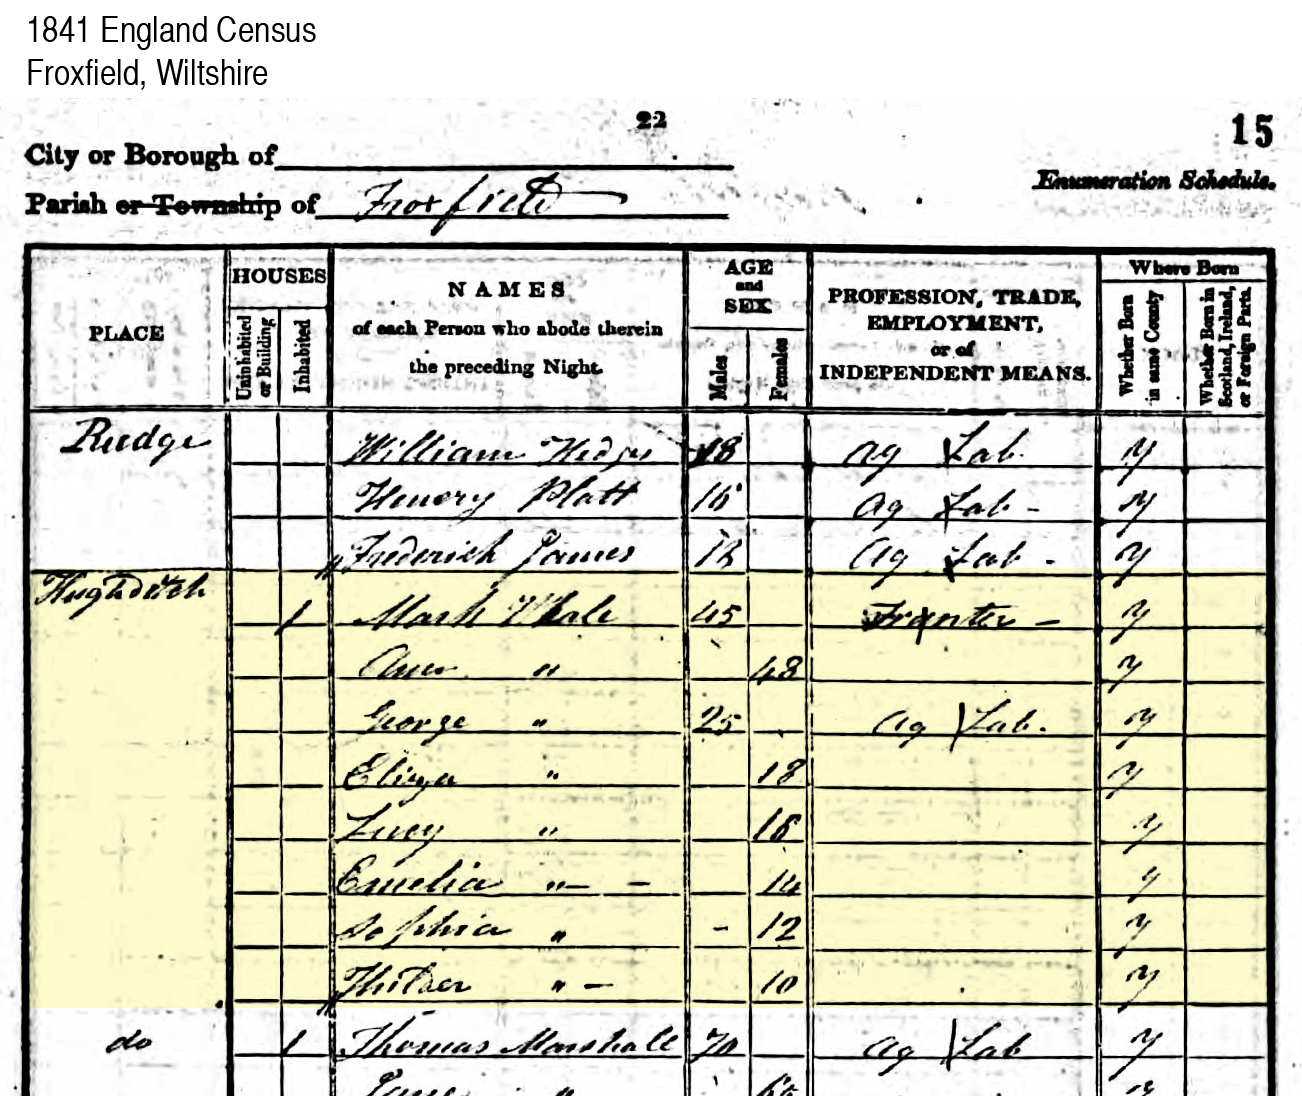 1841 England Census
Froxfield, Wiltshire
22
15
City or Borough of
Enumeration Schedule.
Parish or Township of Froxfield
PLACE
HOUSES
Uninhabited or Building
Inhabited
NAMES
of each Person who abode therein
the preceding Night.
AGE
and
SEX
Males
Females
PROFESSION, TRADE,
EMPLOYMENT,
or of
INDEPENDENT MEANS.
Where Born
Whether Born in same County
Whether Born in Scotland, Ireland, or Foreign Parts.
Rudge William Hedges 18 Ag Lab. y
Henery Platt 15 Ag Lab - y
Frederick James Ag Lab - y
Hughditch
1 Mark Whale 45 y
Ann " 48 y
George " 25 Ag Lab. y
Eliza " 18 y
Lucy " 16 y
Emelia " - - 14 y
Sophia " - 12 y
" - 10 y
do 1 Thomas Marshall 70 Ag Lab y
Jane "